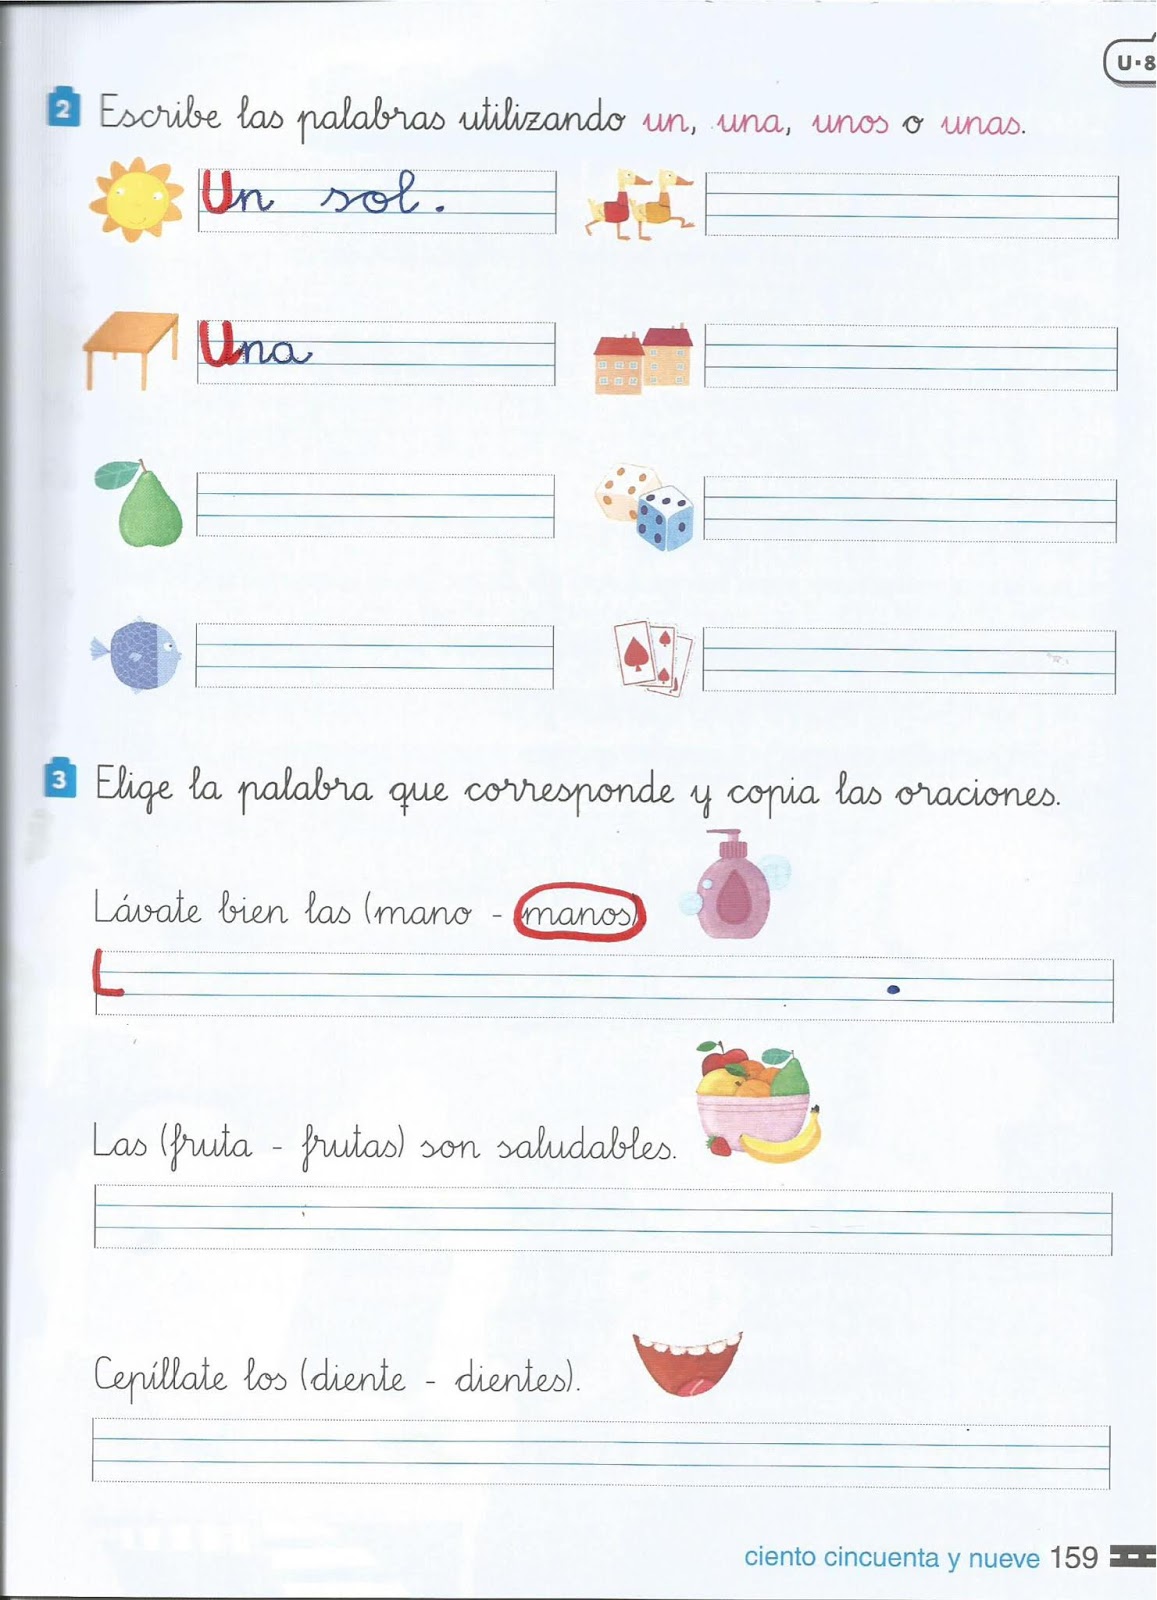 U·8
2 Escribe las palabras utilizando un, una, unos o unas.
Un sol.
Una
3 Elige la palabra que corresponde y copia las oraciones.
Lávate bien las (mano - manos)
L .
Las (fruta - frutas) son saludables.
Cepíllate los (diente - dientes).
ciento cincuenta y nueve 159